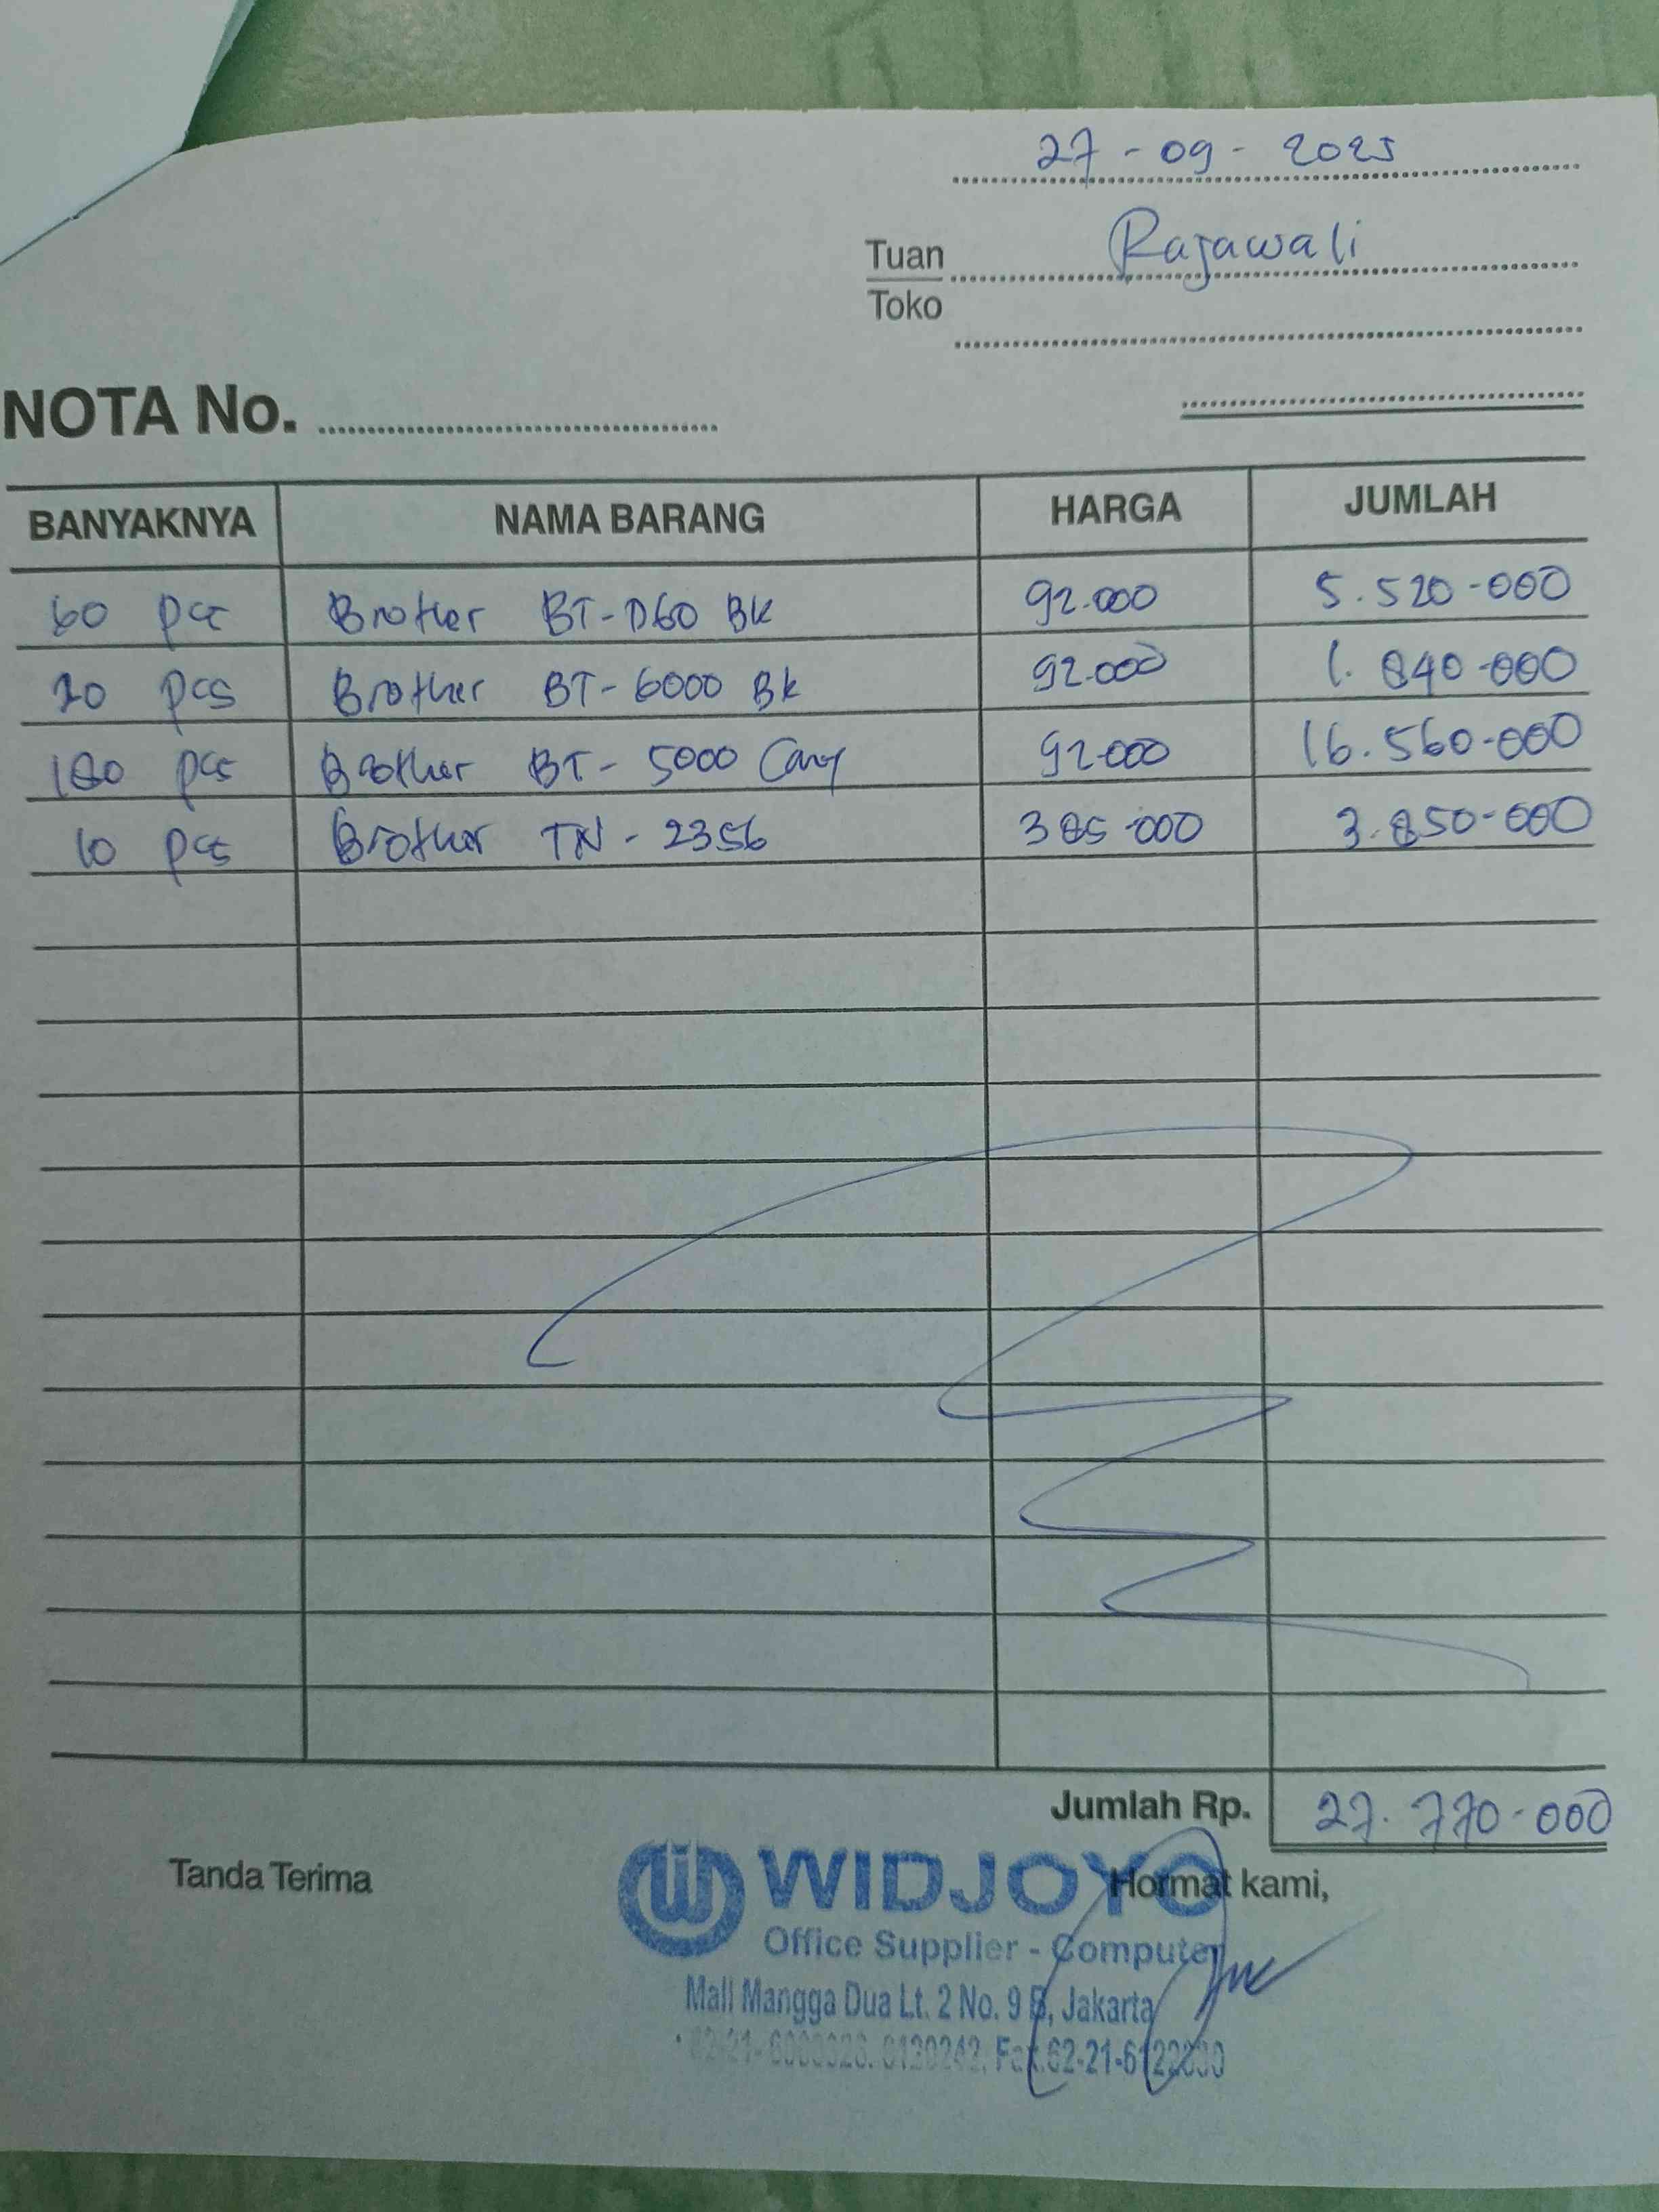 27 - 09 - 2025
Tuan Rajawali
Toko
NOTA No.
BANYAKNYA NAMA BARANG HARGA JUMLAH
60 pcs Brother BT-D60 BK 92.000 5.520-000
20 pcs Brother BT-6000 BK 92.000 1.840-000
180 pcs Brother BT-5000 92.000 16.560-000
10 pcs Brother TN-2356 385-000 3.850-000
Jumlah Rp. 27.770-000
Tanda Terima
Hormat kami,
WIDJOYO
Office Supplier - Computer
Mall Mangga Dua Lt. 2 No. 9 B, Jakarta
Fax.62-21-